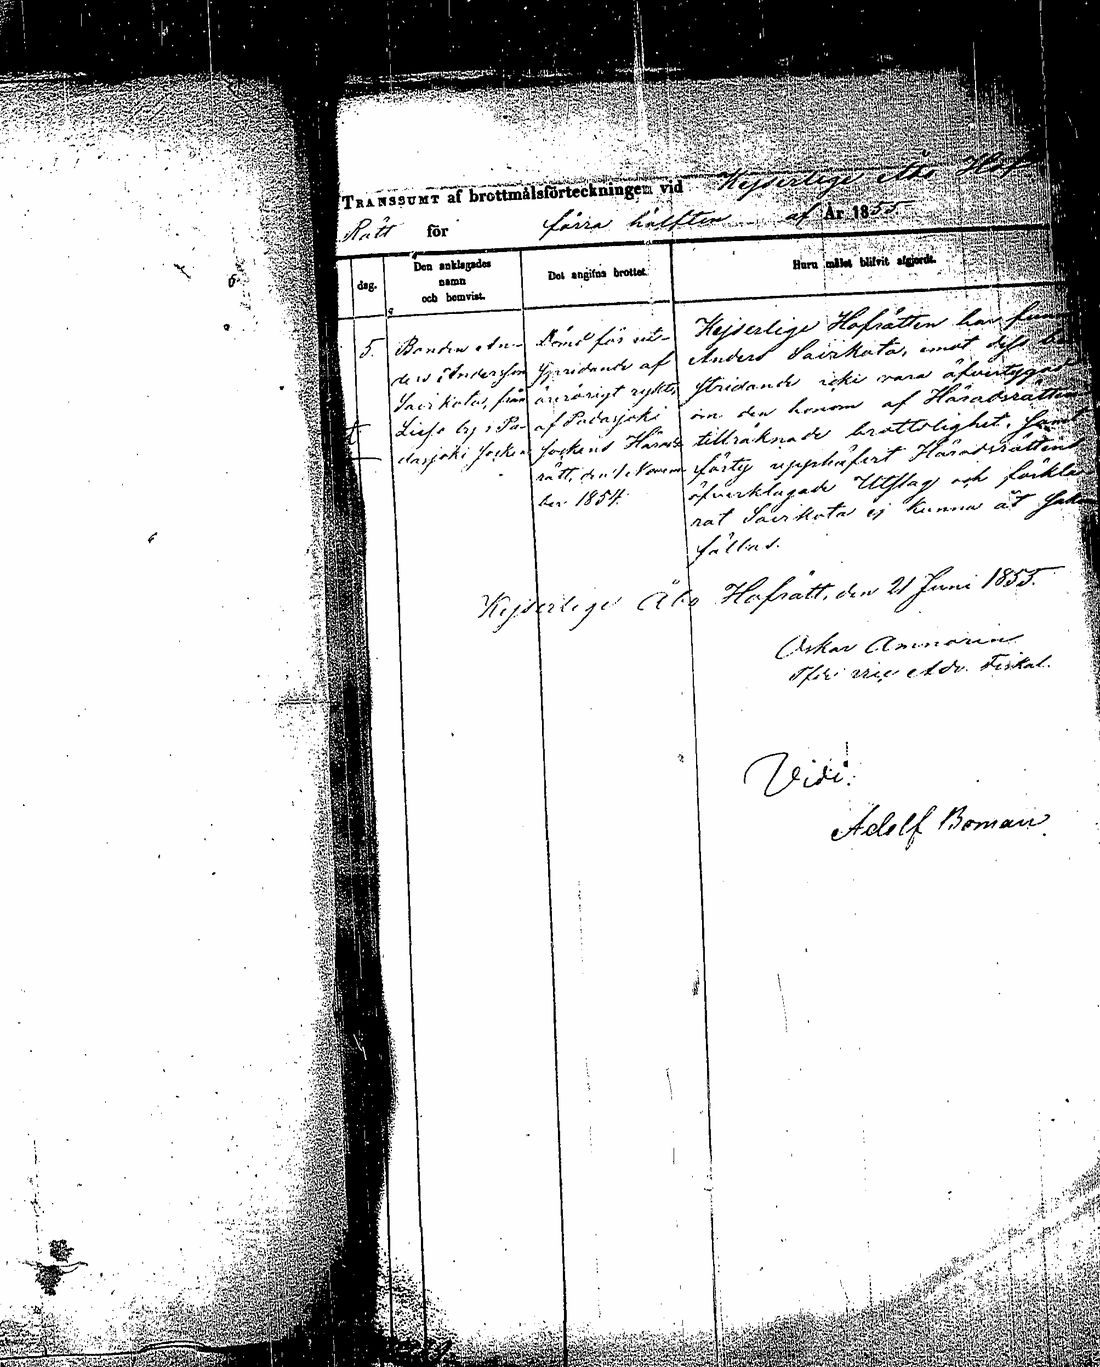 TRANSSUMT af brottmålsförteckningen vid Kejserlige Åbo Hof-
Rätt för förra hälften af År 1855
dag.
Den anklagades
namn
och hemvist.
Det angifna brottet.
Huru målet blifvit afgjordt.
5.
Bonden An-
ders Andersson
Sairkata, från
by i Pa-
dasjoki Socken
Dömd för ut-
spridande af
ärerörigt rykte,
af Padasjoki
Sockens Härads
rätt, den 1 Novem
ber 1854.
Kejserlige Hofrätten har
Anders Sairkata, emot dess
stridande icke vara öfvertygad
om den honom af Häradsrätten
tillräknade brottslighet,
upphäfvit Häradsrättens
öfverklagade Utslag och förkla
rat Sairkata ej kunna åt saken
fällas.
Kejserlige Åbo Hofrätt, den 21 Juni 1855.
Oskar
vice Adv. Fiskal.
Vidi:
Adolf Boman.